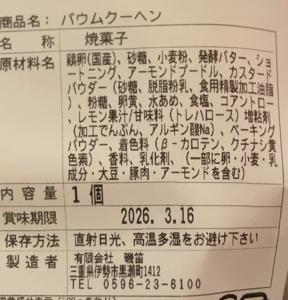 商品名：バウムクーヘン
名称 焼菓子
原材料名 鶏卵(国産)、砂糖、小麦粉、発酵バター、ショ
ートニング、アーモンドプードル、カスタード
パウダー(砂糖、脱脂粉乳、食用精製加工油脂
)、粉糖、卵黄、水あめ、食塩、コアントロー
、レモン果汁/甘味料(トレハロース)増粘剤
(加工でんぷん、アルギン酸Na)、ベーキング
パウダー、着色料(β-カロテン、クチナシ黄
色素)、香料、乳化剤、(一部に卵・小麦・乳
成分・大豆・豚肉・アーモンドを含む)
内容量 1個
賞味期限 2026. 3.16
保存方法 直射日光、高温多湿をお避け下さい
製造者 有限会社 磯笛
三重県伊勢市黒瀬町1412
TEL 0596-23-6100